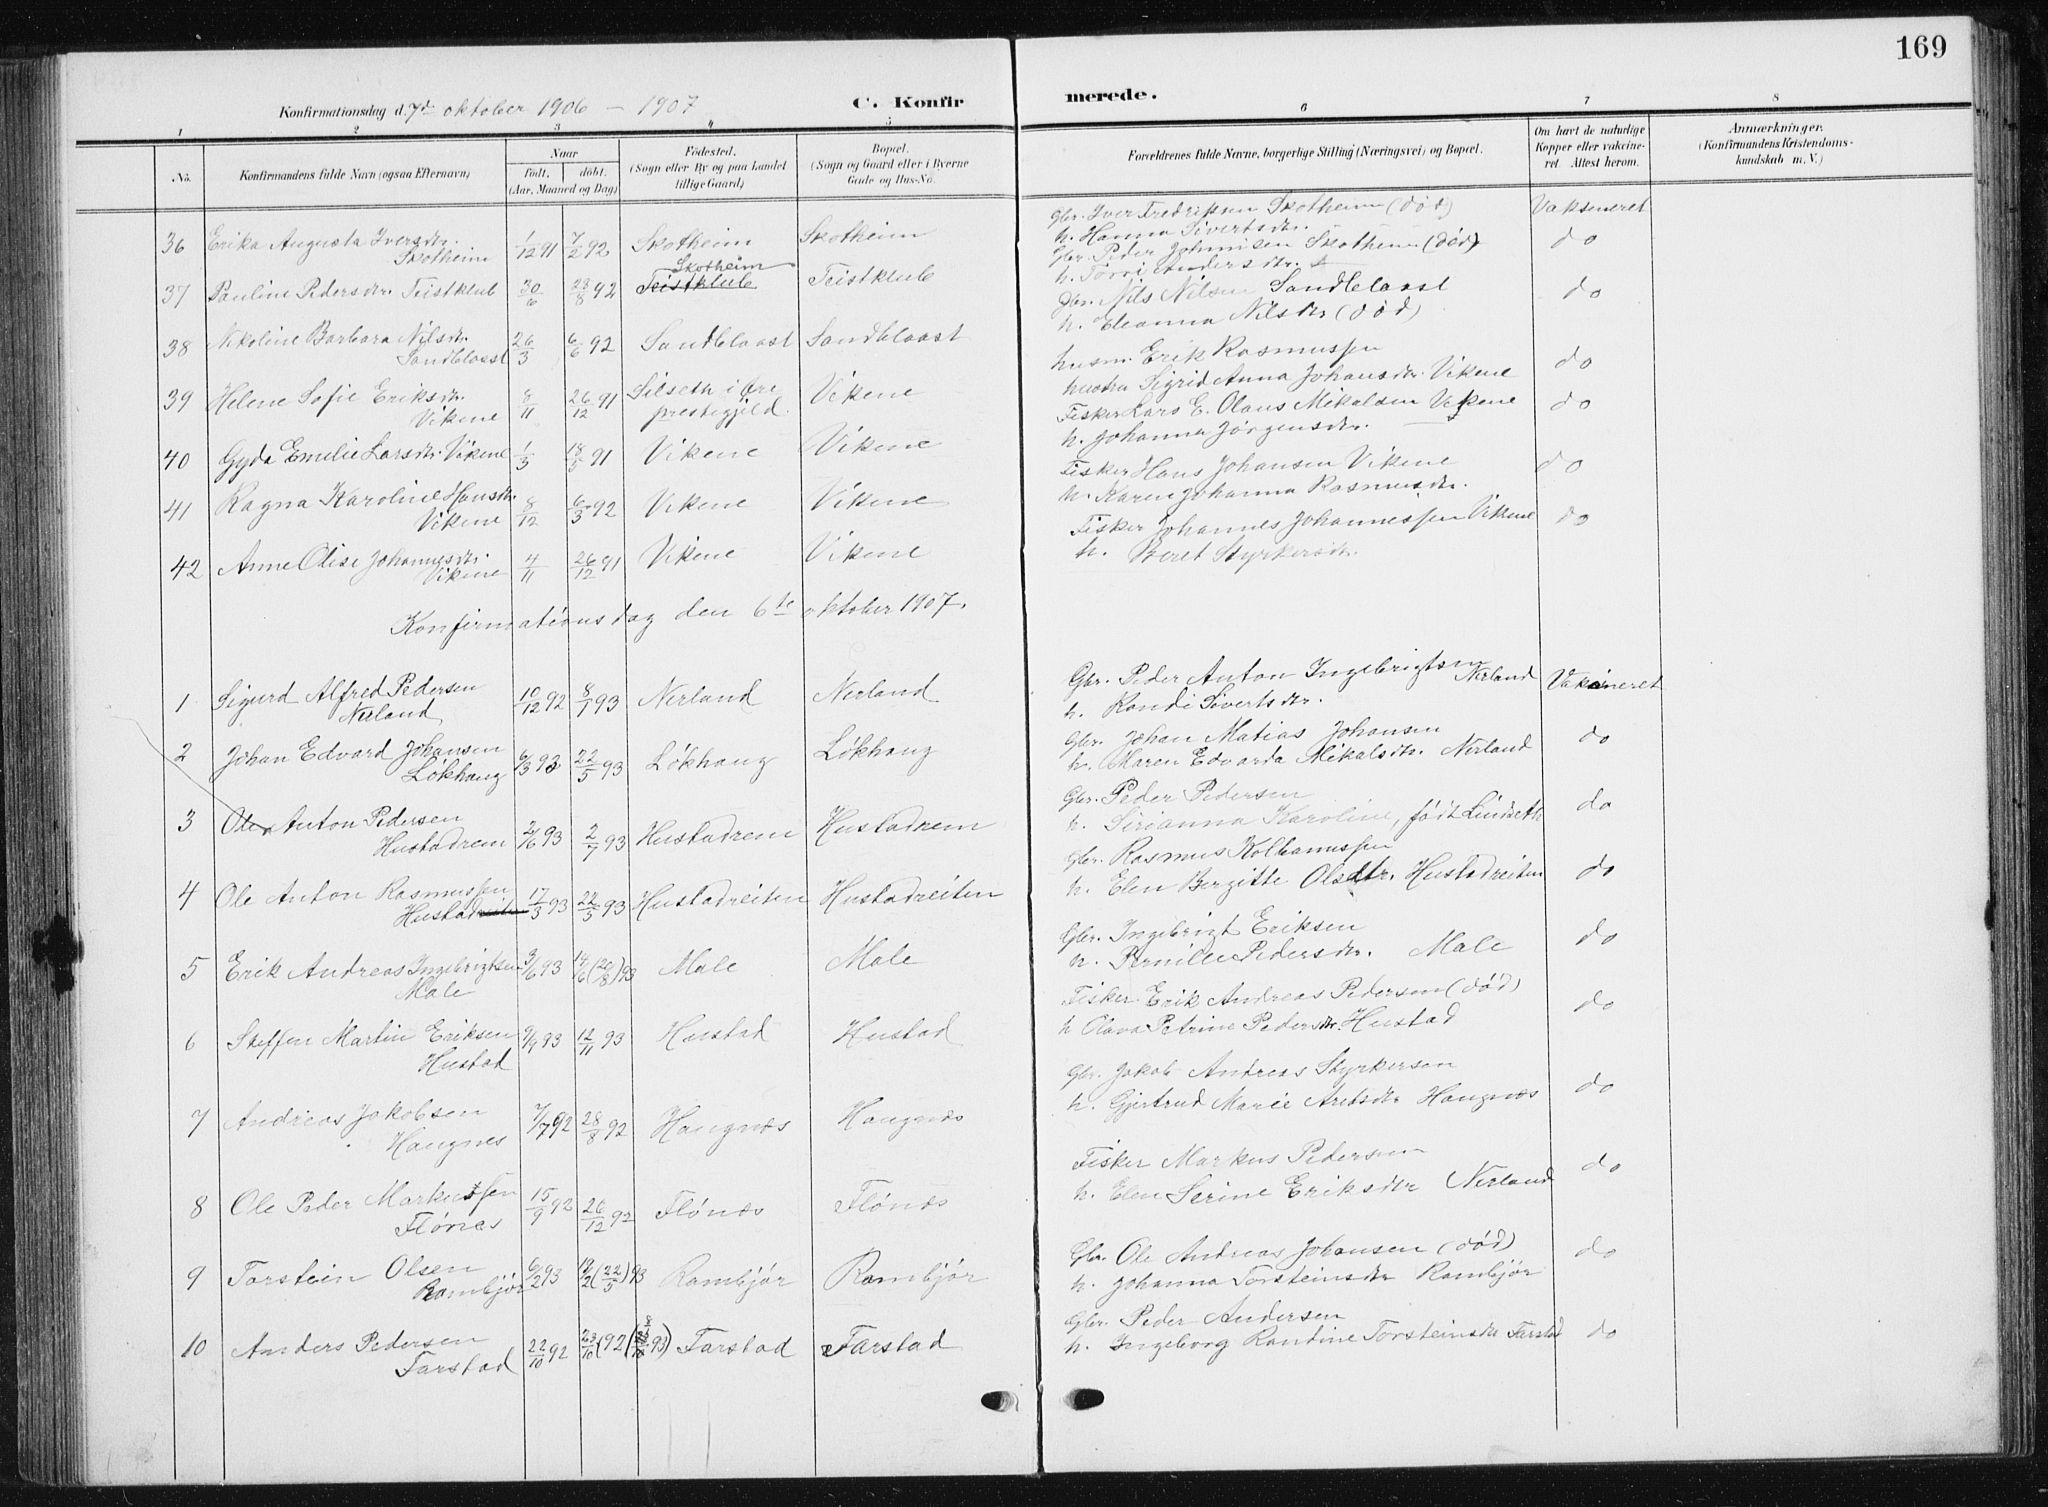 169
Konfirmationsdag d. 7de oktober 1906 – 1907
C. Konfirmerede.
1 2 3 4 5 6 7 8
No.
Konfirmandens fulde Navn (ogsaa Efternavn)
Naar
født. døbt.
(Aar, Maaned og Dag)
Fødested.
(Sogn eller By og paa Landet
tillige Gaard)
Bopæl.
(Sogn og Gaard eller i Byerne
Gade og Hus-No.
Forældrenes fulde Navne, borgerlige Stilling (Næringsvei) og Bopæl.
Om havt de naturlige
Kopper eller vakcine-
ret. Attest herom.
Anmærkninger.
(Konfirmandens Kristendoms-
kundskab m. V.)
36 Erika Augusta Iversdtr. Skotheim 1/12 91 7/2 92 Skotheim Skotheim
Gbr. Iver Fredriksen Skotheim (død) Vaksineret
h. Hanna Sivertsdtr.
37 Pauline Pedersdtr. Teistklub 30/6 23/8 92 Skotheim Teistklub Teistklub
Gbr. Peder Johnnisen Skotheim (død) do
h. Andersdtr.
38 Nikoline Barbara Nilsdtr. Sandblaast 26/3 6/6 92 Sandblaast Sandblaast
Gbr. Nils Nilsen Sandblaast do
h. Eleanna Nilsdtr (død)
39 Helene Sofie Eriksdtr. Vikene 8/11 26/12 91 Silseth i Øre prestegjeld. Vikene
husm. Erik Rasmussen do
hustru Sigrid Anna Johansdtr. Vikene
40 Gyda Emilie Larsdtr. Vikene 1/3 18/5 91 Vikene Vikene
Fisker Lars E. Olaus Mikalsen Vikene do
h. Johanna Jørgensdtr.
41 Ragna Karoline Hansdtr. Vikene 8/12 6/3 92 Vikene Vikene
Fisker Hans Johansen Vikene do
h. Karen Johanna Rasmusdtr.
42 Anne Olise Johannesdtr. Vikene 4/11 26/12 91 Vikene Vikene
Fisker Johannes Johannessen Vikene do
h. Beret Styrkersdtr.
Konfirmationsdag den 6te oktober 1907.
1 Sigurd Alfred Pedersen Nerland 10/12 92 8/1 93 Nerland Nerland
Gbr. Peder Anton Ingebrigtsen Nerland Vaksineret
h. Randi Sivertsdtr.
2 Johan Edvard Johansen Løkhaug 6/3 93 22/5 93 Løkhaug Løkhaug
Gbr. Johan Matias Johansen do
h. Maren Edvarda Mikalsdtr. Nerland
3 Ole Anton Pedersen Hustadrem 2/6 93 2/7 93 Hustadrem Hustadrem
Gbr. Peder Pedersen do
h. Sirianna Karoline, født Lindseth
4 Ole Anton Rasmussen Hustadreiten 17/3 93 22/5 93 Hustadreiten Hustadreiten
Gbr. Rasmus Kolbanussen do
h. Elen Bergitte Olsdtr. Hustadreiten
5 Erik Andreas Ingebrigtsen Male 3/6 93 14/6 (20/8) 93 Male Male
Gbr. Ingebrigt Eriksen do
h. Pernille Pedersdtr. Male
6 Steffen Martin Eriksen Hustad 9/9 93 12/11 93 Hustad Hustad
Fisker Erik Andreas Pedersen (død) do
h Olava Petrine Pedersdtr. Hustad
7 Andreas Jakobsen Haugnes 7/7 92 28/8 92 Haugnæs Haugnæs
Gbr. Jakob Andreas Styrkersen do
h. Gjertrud Marie Arntsdtr Haugnæs
8 Ole Peder Markussen Flønes 15/9 92 26/12 92 Flønæs Flønæs
Fisker Markus Pedersen do
h. Elen Serine Eriksdtr Nerland
9 Torstein Olsen Rambjør 6/2 93 18/2 (22/5) 93 Rambjør Rambjør
Gbr. Ole Andreas Johansen (død) do
h. Johanna Torsteinsdtr Rambjør
10 Anders Pedersen Farstad 22/10 92 23/10 92 93) Farstad Farstad
Gbr. Peder Andersen do
h. Ingeborg Randine Torsteinsdtr Farstad